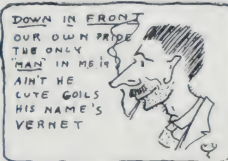 DOWN IN FRONT
OUR OWN PRIDE
THE ONLY
"MAN" IN M.E. 19
AIN'T HE
CUTE GOILS
HIS NAME'S
VERNET